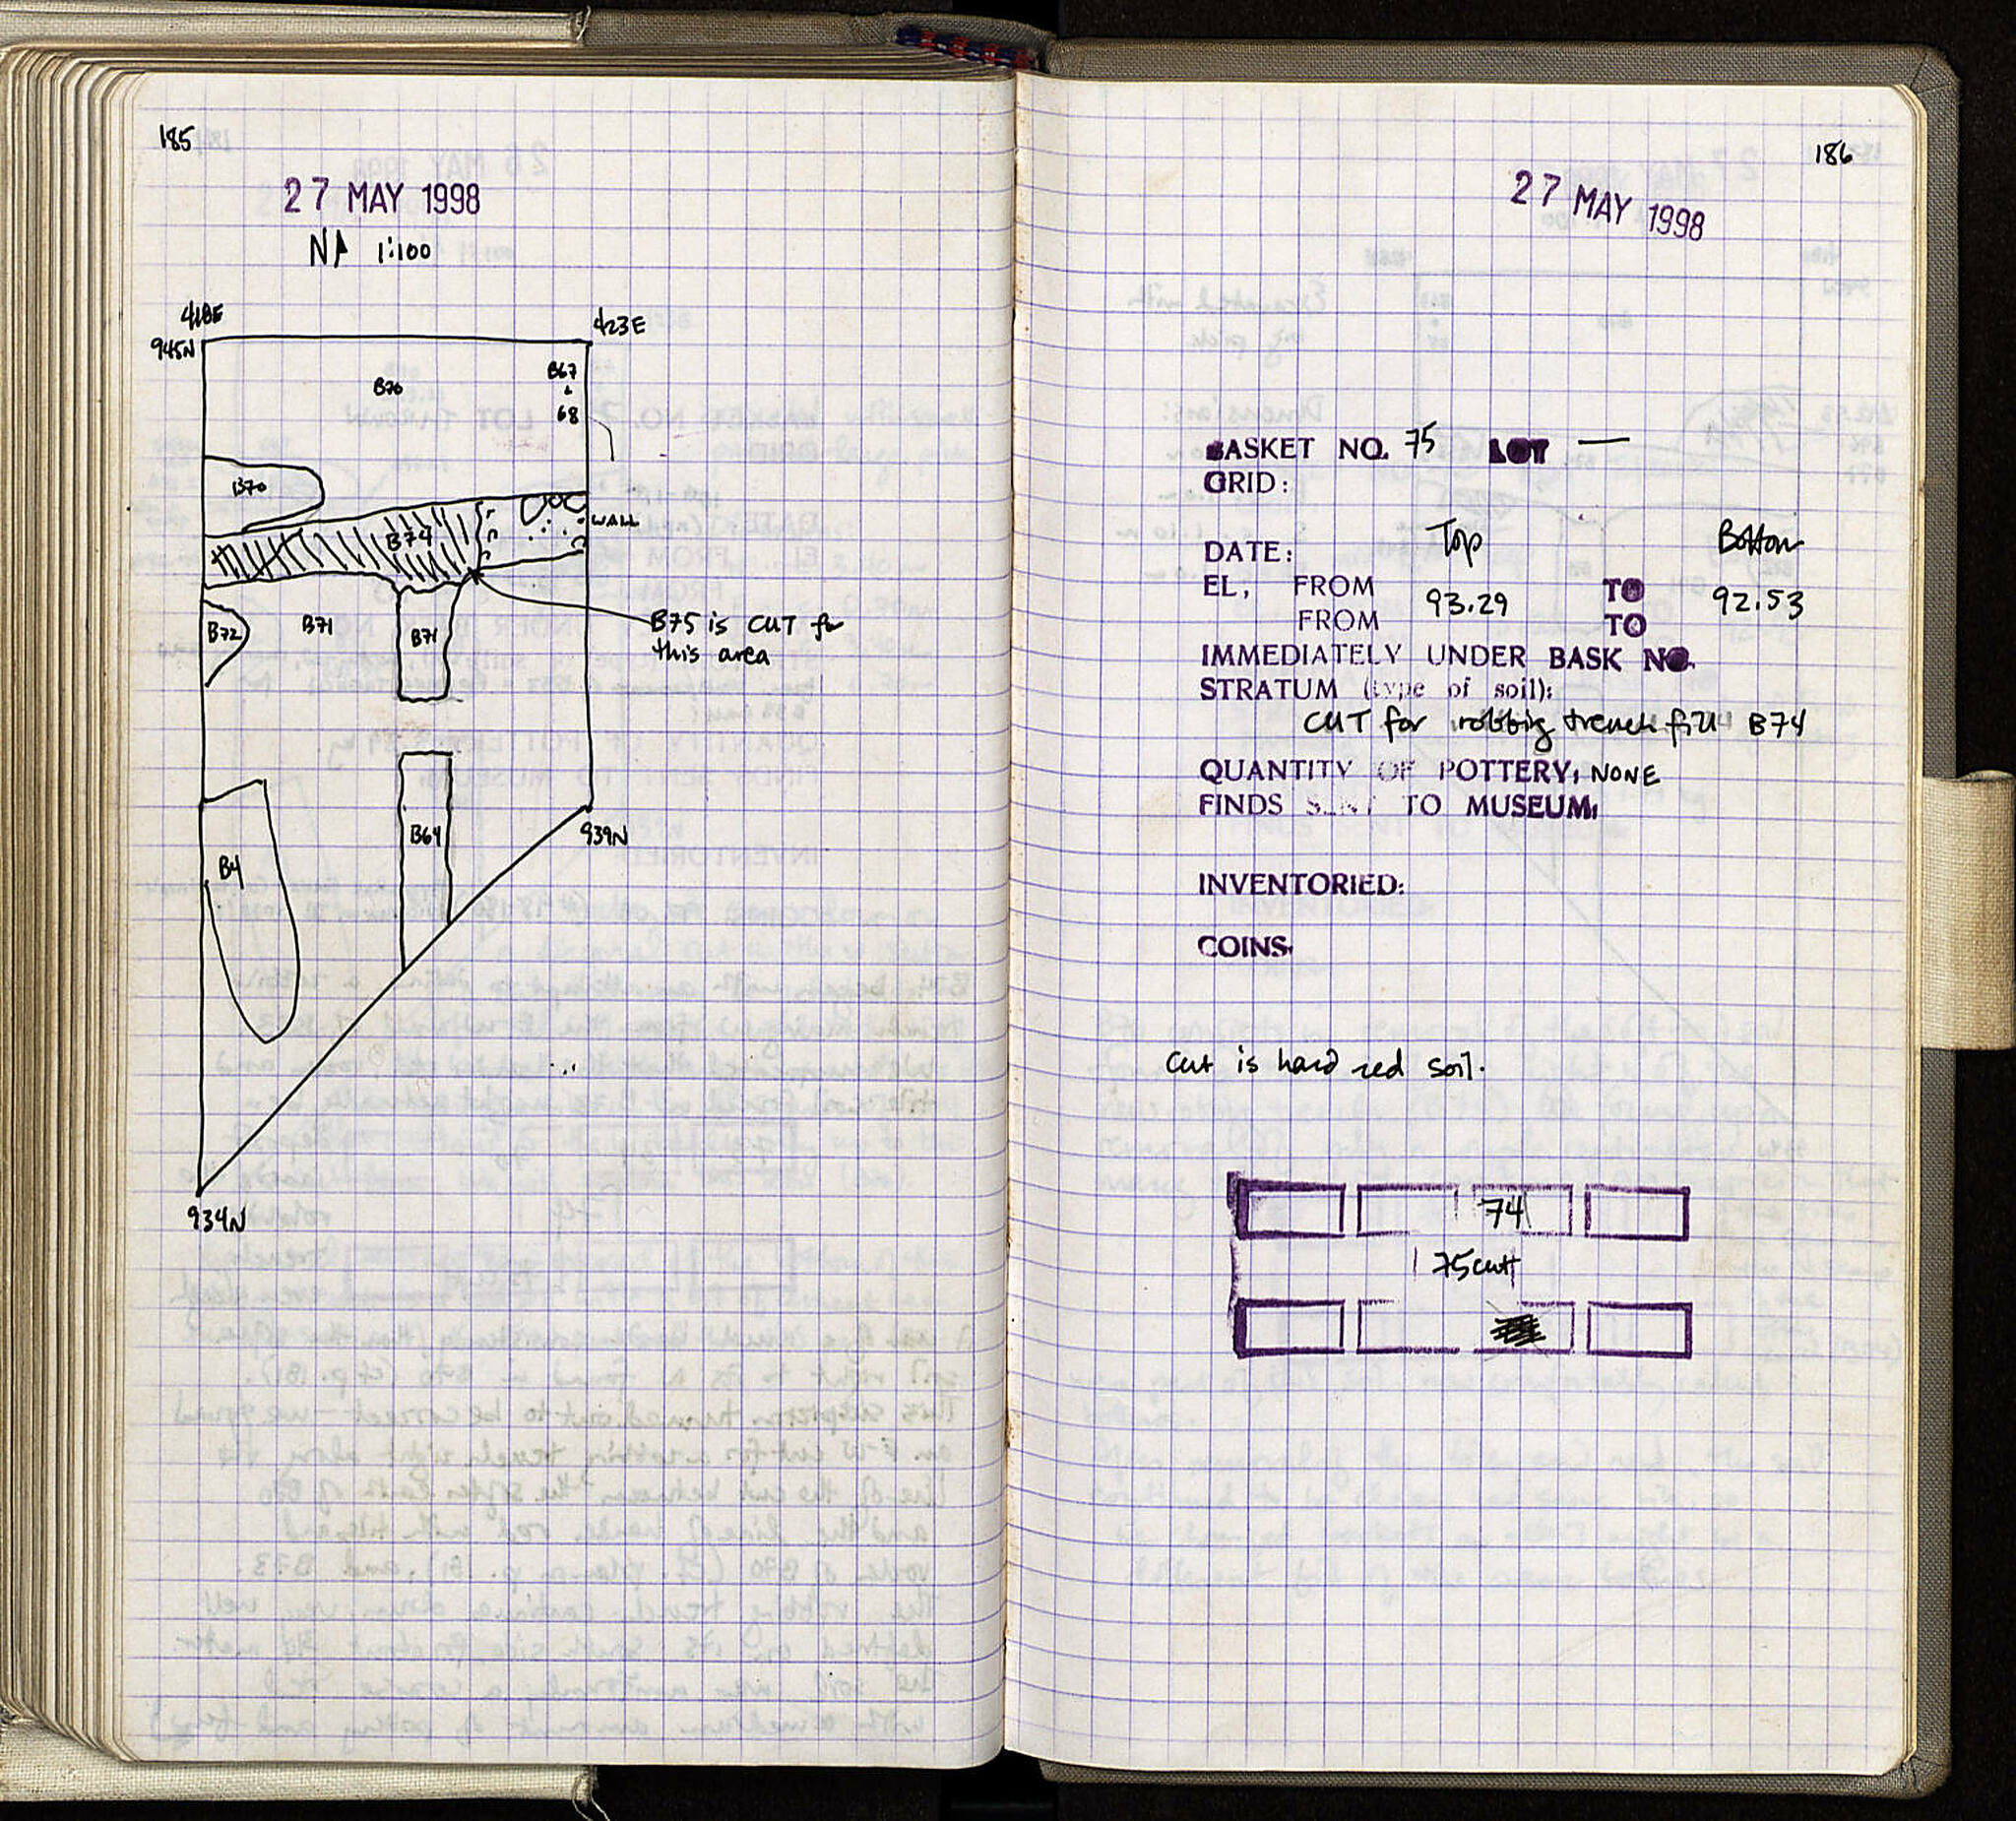 185
27 MAY 1998
N 1:100
418E
423E
945N
B67
B70
+
68
B70
B74
WALL
B72
B71
B71
B75 is CUT for
this area
B64
939N
B4
934N
186
27 MAY 1998
BASKET NO. 75 LOT —
GRID:
DATE: Top Bottom
EL, FROM 93.29 TO 92.53
FROM TO
IMMEDIATELY UNDER BASK NO.
STRATUM (type of soil):
CUT for robbing trench fill B74
QUANTITY OF POTTERY: NONE
FINDS SENT TO MUSEUM:
INVENTORIED:
COINS:
Cut is hard red soil.
74
75cut